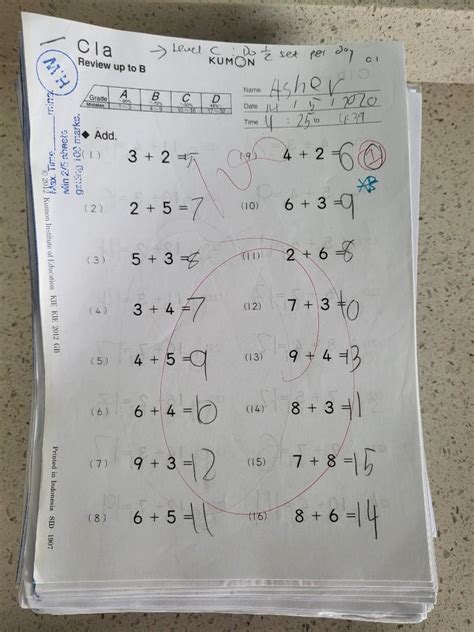 C1a → Level C : Do ½ set per day
KUMON C 1
Review up to B
Grade A B C D
Name Asher
Date 14 / 5 / 2020
Time 4 : 25 to 4:39
M.H
Max. Time mins
Min 2/5 sheets
getting 100 marks.
◆ Add.
(1) 3 + 2 = 5
(2) 2 + 5 = 7
(3) 5 + 3 = 8
(4) 3 + 4 = 7
(5) 4 + 5 = 9
(6) 6 + 4 = 10
(7) 9 + 3 = 12
(8) 6 + 5 = 11
(9) 4 + 2 = 6
(10) 6 + 3 = 9
(11) 2 + 6 = 8
(12) 7 + 3 = 10
(13) 9 + 4 = 13
(14) 8 + 3 = 11
(15) 7 + 8 = 15
(16) 8 + 6 = 14
© 2012 Kumon Institute of Education KIE KIE 2012 GB
Printed in Indonesia SID 1907